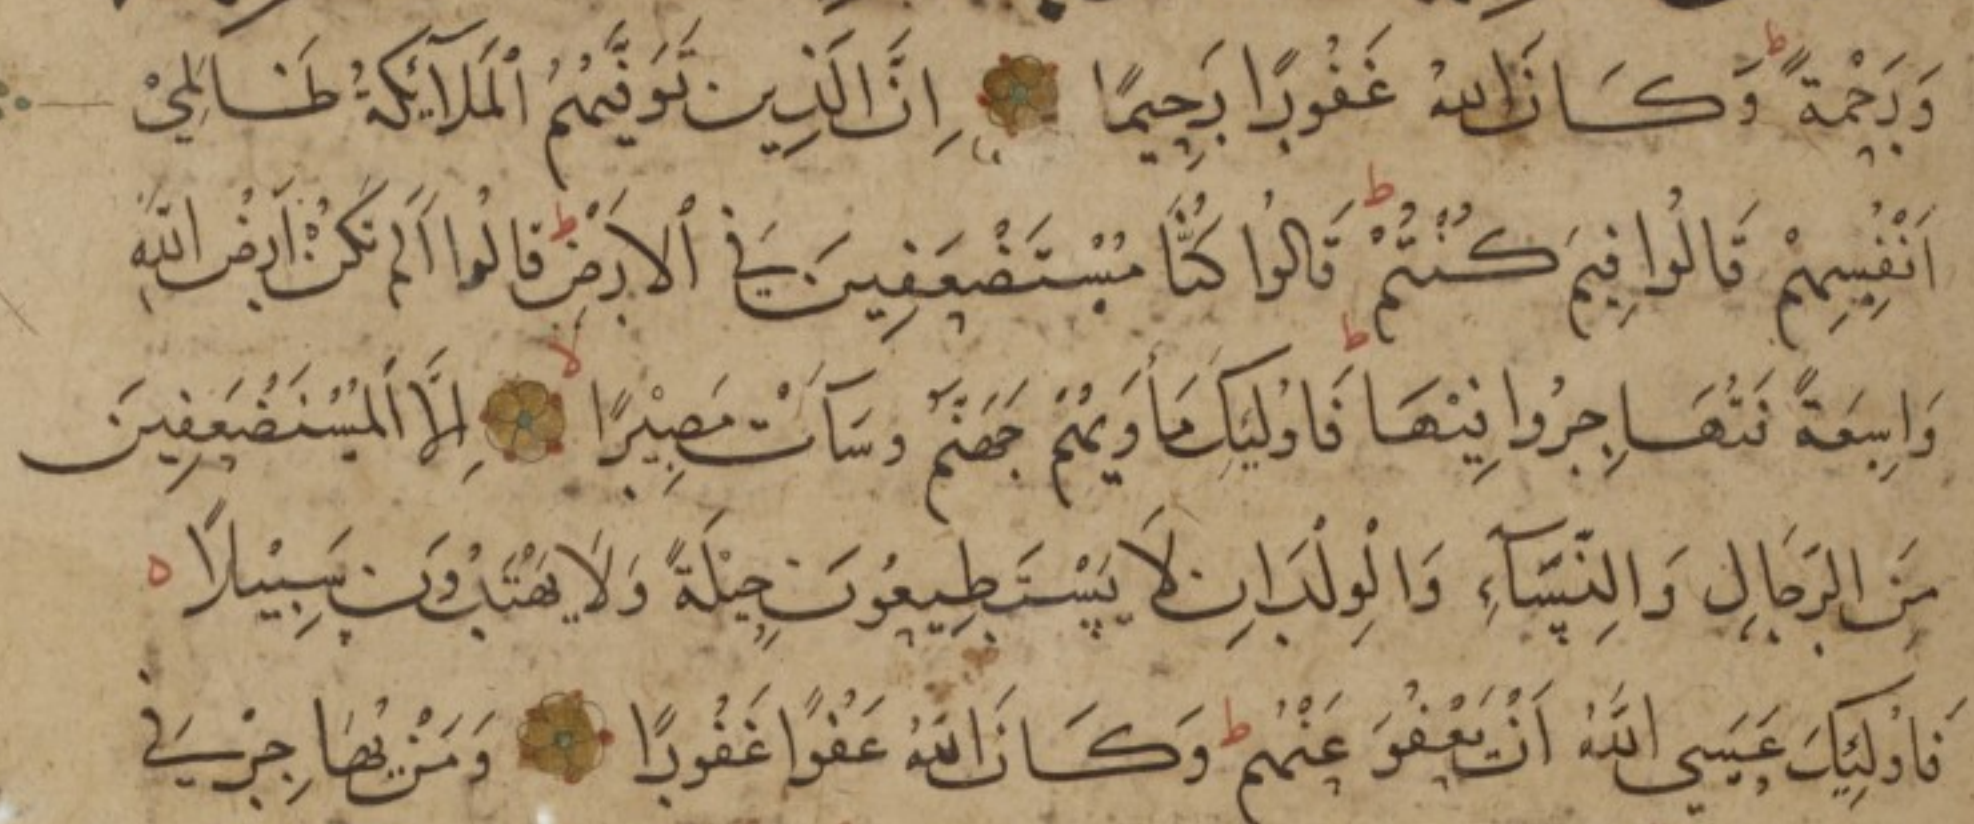 وَرَحْمَةً ط وَكَانَ اللهُ غَفُورًا رَحِيمًا اِنَّ الَّذِينَ تَوَفَّيهُمُ الْمَلَآئِكَةُ ظَالِمِيْ
اَنْفُسِهِمْ قَالُوا فِيمَ كُنْتُمْ ط قَالُوا كُنَّا مُسْتَضْعَفِينَ فِي الْاَرْضِ ط قَالُوا اَلَمْ تَكُنْ اَرْضُ اللّٰهِ
وَاسِعَةً فَتُهَاجِرُوا فِيْهَا ط فَاُولٰئِكَ مَأْوَيهُمْ جَهَنَّمُ وَسَآءَتْ مَصِيْرًا لا اِلَّا الْمُسْتَضْعَفِينَ
مِنَ الرِّجَالِ وَالنِّسَآءِ وَالْوِلْدَانِ لَا يَسْتَطِيعُونَ حِيْلَةً وَلَا يَهْتَدُونَ سَبِيْلًا ه
فَاُولٰئِكَ عَسَي اللّٰهُ اَنْ يَعْفُوَ عَنْهُمْ ط وَكَانَ اللّٰهُ عَفُوًّا غَفُورًا وَمَنْ يُهَاجِرْ فِي